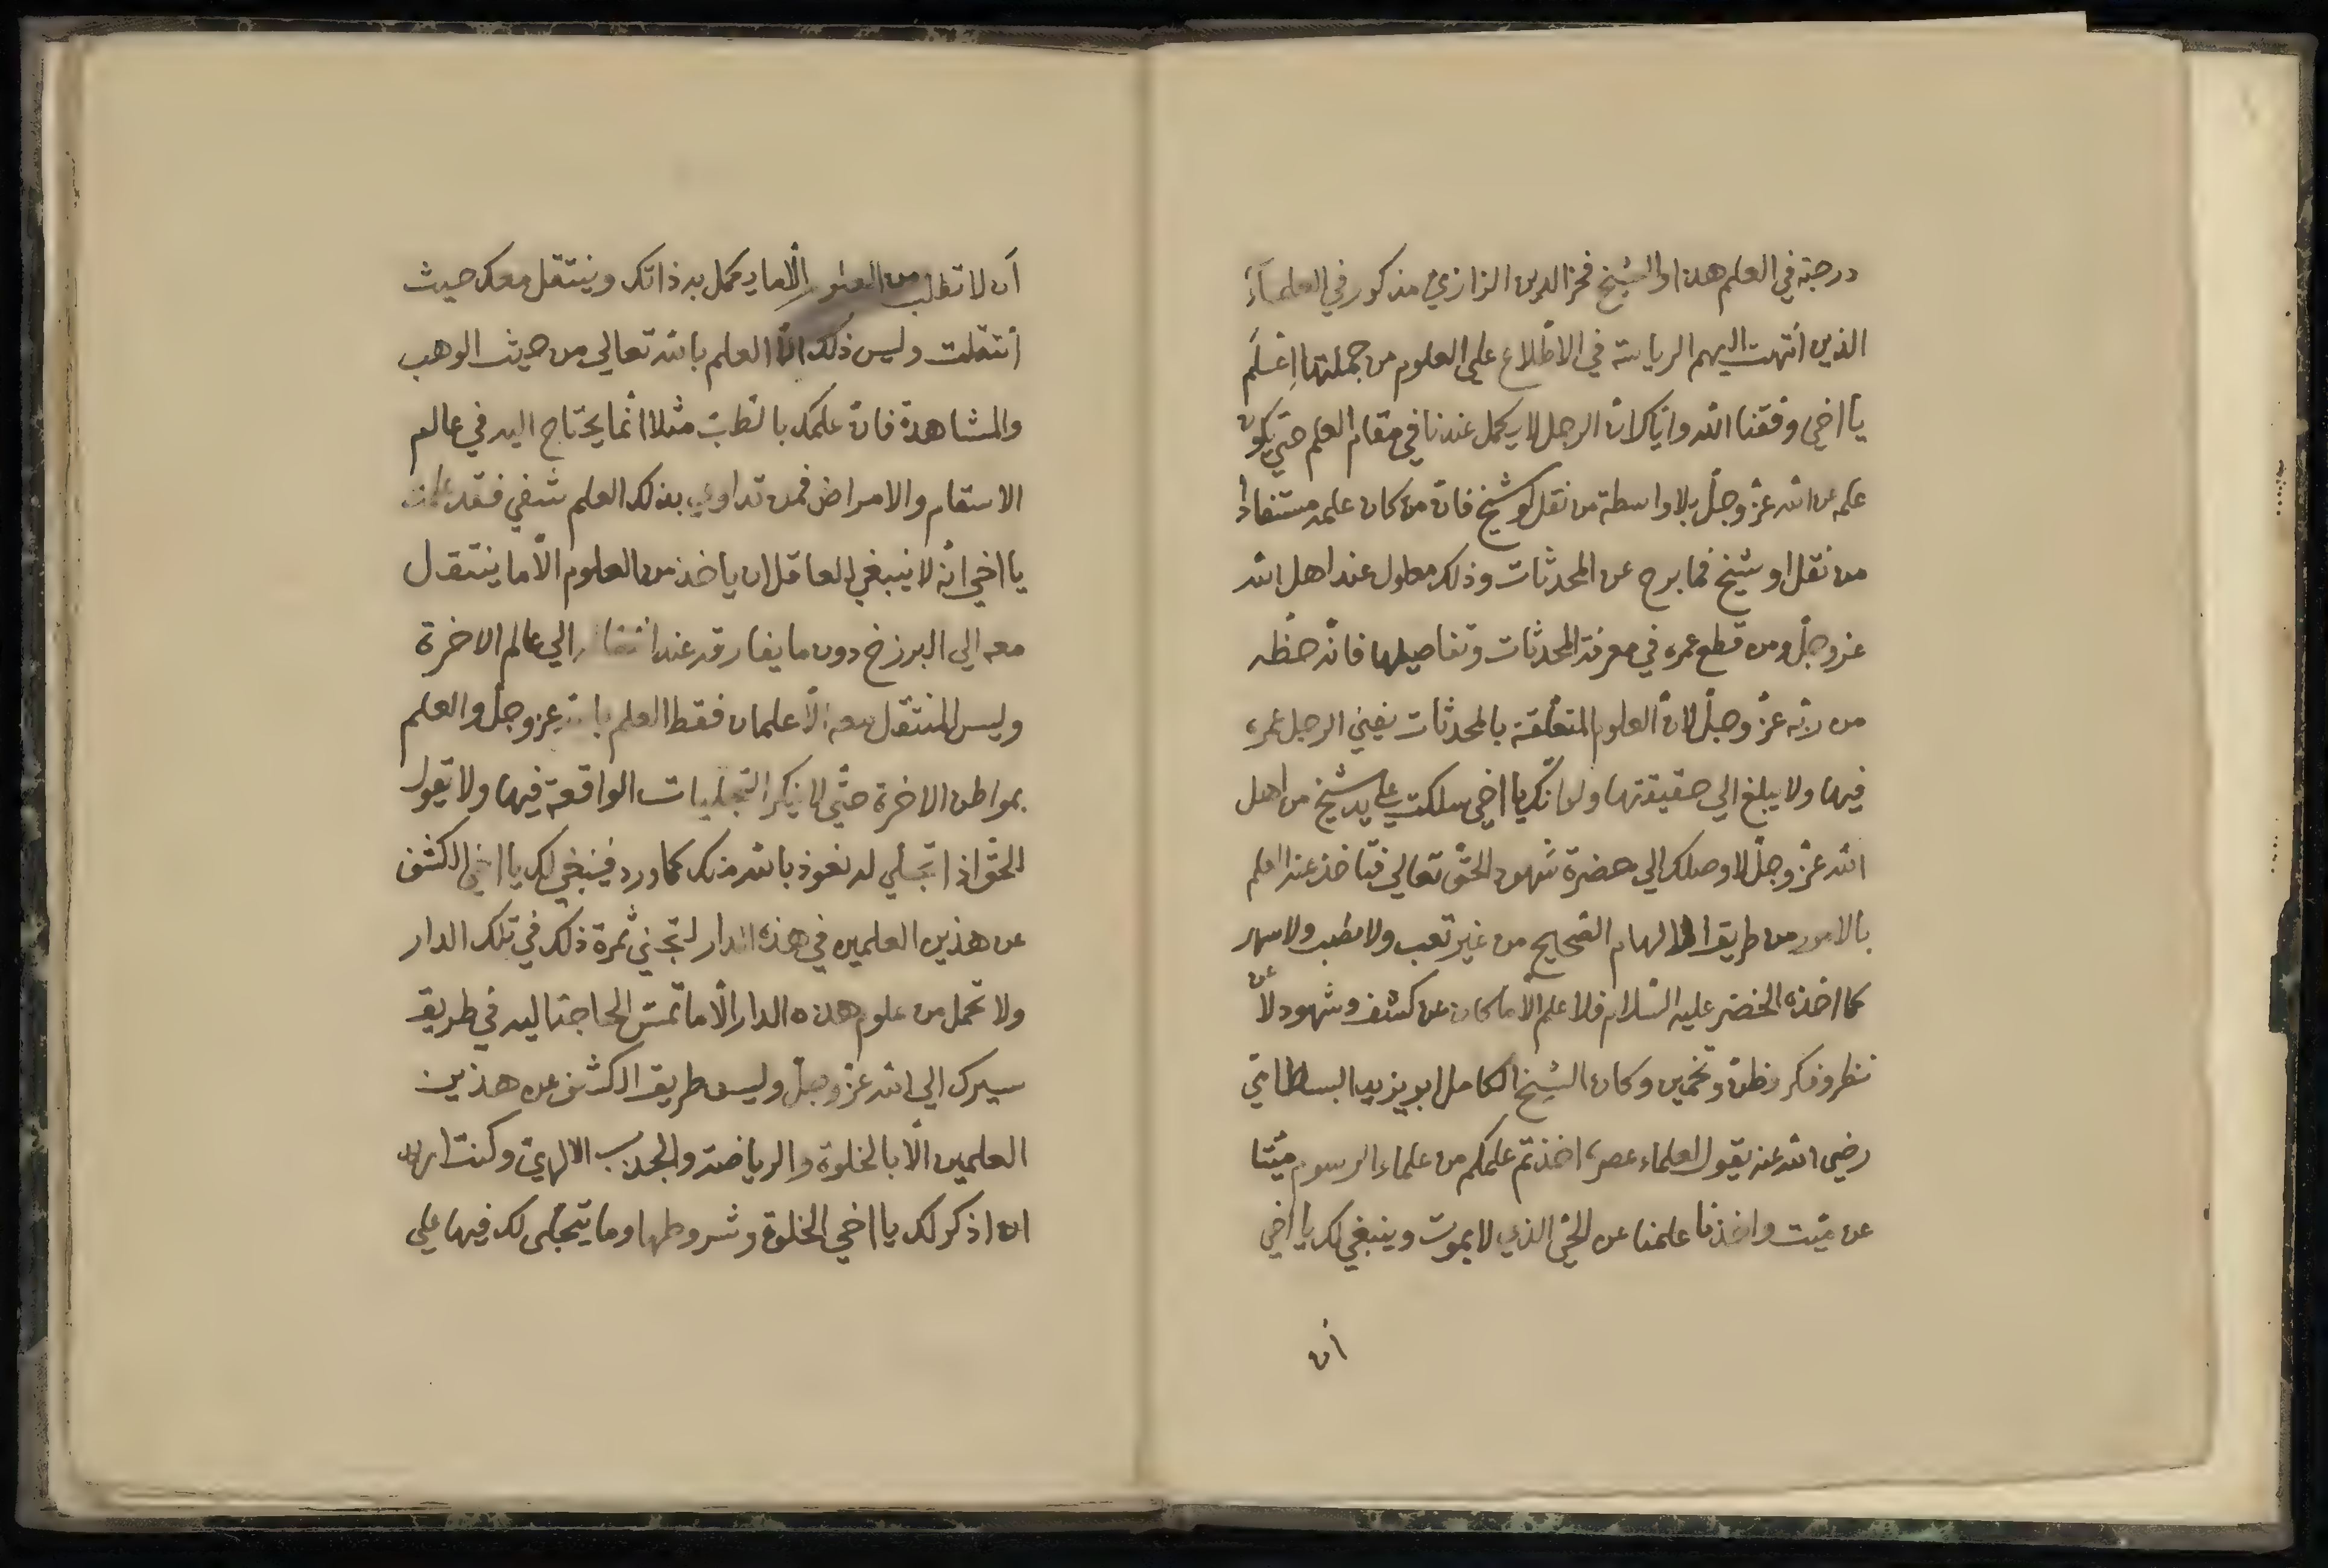 درجته في العلم هذا والشيخ فخر الدين الرازي مذكور في العلماء
الذين انتهت اليهم الرياسة في الاطّلاع على العلوم من جملتها اِعْلَم
يا اخي وفّقنا الله وايّاك انّ الرجل لا يكمل عندنا في مقام العلم حتّي يكون
علمه عن الله عزّ وجلّ بلا واسطة من نقل او شيخ فانّ من كان علمه مستفادا
من نقل او شيخ فما برح عن المحدثات وذلك معلول عند اهل الله
عزوجلّ ومن قطع عمره في معرفة المحدثات وتفاصيلها فاته حظّه
من ربّه عزّ وجلّ لانّ العلوم المتعلّقة بالمحدثات يفني الرجل عمره
فيها ولا يبلغ الي حقيقتها ولو انّك يا اخي سلكت علي يد شيخ من اهل
الله عزّ وجلّ لاوصلك الي حضرة شهود الحقّ تعالي فتاخذ عنه العلم
بالامور من طريق الالهام الصّحيح من غير تعب ولا نصب ولا سهر
كما اخذه الخضر عليه السّلام فلا علم الّا ما كان عن كشف وشهود لا عن
نظر وفكر وظنّ وتخمين وكان الشيخ الكامل ابو يزيد البسطامي
رضي الله عنه يقول لعلماء عصره اخذتم علمكم من علماء الرسوم ميّتا
عن ميّت واخذنا علمنا عن الحيّ الذي لا يموت وينبغي لك يا اخي
ان
أن لا تطلب من العلوم الّا ما يكمل به ذاتك وينتقل معك حيث
انتقلت وليس ذلك الّا العلم بالله تعالي من حيث الوهب
والمشاهدة فانّ علمك بالطّبّ مثلا انّما يحتاج اليه في عالم
الاسقام والامراض فمن تداوي بذلك العلم شفي فقد علمت
يا اخي انّه لا ينبغي لعاقل ان ياخذ من العلوم الّا ما ينتقل
معه الي البرزخ دون ما يفارقه عند انتقاله الي عالم الاخرة
وليس المنتقل معه الّا علمان فقط العلم بالله عزوجلّ والعلم
بمواطن الاخرة حتّي لا ينكر التّجليات الواقعة فيها ولا تقول
للحقّ اذا تجلّي له نعوذ بالله منك كما ورد فينبغي لك يا اخي الكشف
عن هذين العلمين في هذه الدار لتجني ثمرة ذلك في تلك الدار
ولا تحمل من علوم هذه الدار الّا ما تمسّ الحاجة اليه في طريق
سيرك الي الله عزّ وجلّ وليس طريق الكشف عن هذين
العلمين الّا بالخلوة والرياضة والجذب الالهيّ وكنت اريد
ان اذكر لك يا اخي الخلوة وشروطها وما يتجلّى لك فيها علي